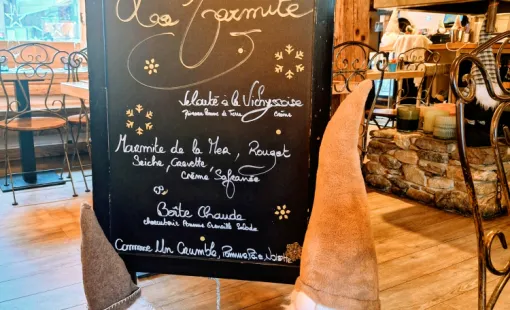 La Marmite
Velouté a la Vichyssoise
Pomme de Terre Crème
Marmite de la Mer, Rouget
Seiche, Crevette
Crème Safranée
ou
Boîte Chaude
charcuterie Pomme Grenaille Salade
Comme Un Crumble, Pomme Poire Noisette